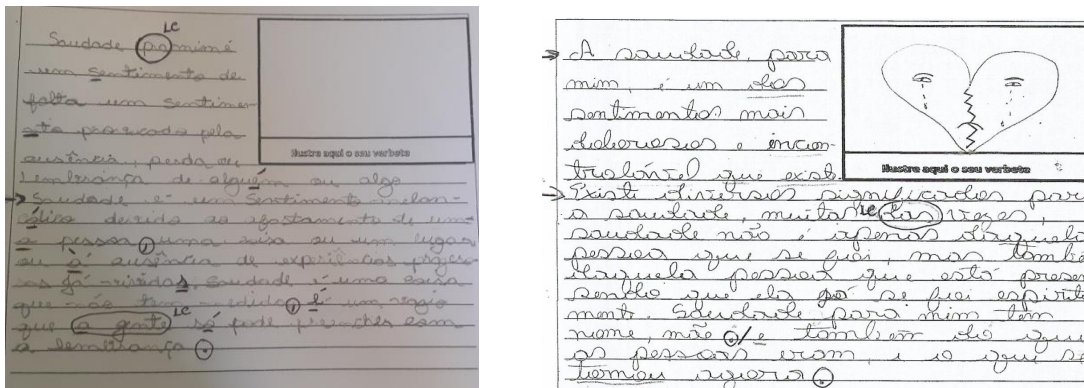 LC
Saudade pra mim é
um sentimento de
falta um sentimen-
to provocado pela
ausência, perda ou
lembrança de alguém ou algo
Ilustre aqui o seu verbete
→ Saudade é um sentimento melan-
cólico devido ao afastamento de um-
a pessoa, uma coisa ou um lugar
ou à ausência de experiências
já vividas, saudade é uma coisa
que não tem medida, é um
LC
que a gente só pode preencher com
a lembrança.
→ A saudade, para
mim, é um dos
sentimentos mais
dolorosos e incon-
trolável que existe
Ilustre aqui o seu verbete
→ Existe diversos significados par
LC
a saudade, muitas das vezes,
saudade não é apenas daquela
pessoa que se foi, mas també
daquela pessoa que está prese
sentho que ela já se foi espirit
mente. Saudade para mim tem
nome, mãe. é também do que
as pessoas eram, e o que se
tornou agora.